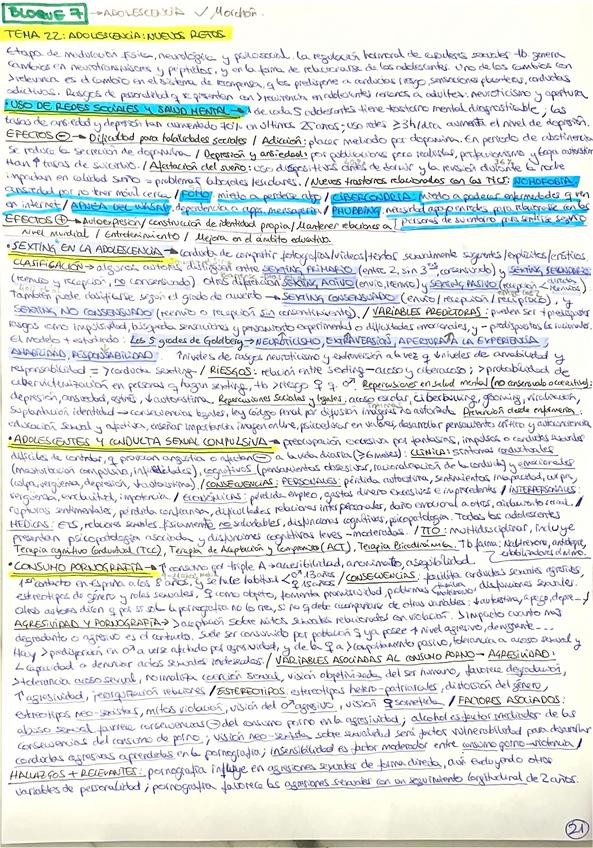 BLOQUE 7 → ADOLESCENCIA ✓ Morchón.
TEMA 22: ADOLESCENCIA: NUEVOS RETOS
Etapa de maduración física, neurológica y psicosocial. la regulación hormonal de caracteres sexuales tb. genera
cambios en neurotransmisores y péptidos, y en la forma de relacionarse de los adolescentes. Uno de los cambios con
>relevancia es el cambio en el sistema de recompensa, q los predispone a conductas riesgo, sensaciones placenteras, conductas
adictivas. Rasgos de personalidad q se presentan con > frecuencia en adolescentes menores a adultos: neuroticismo y apertura
• USO DE REDES SOCIALES Y SALUD MENTAL → 1 de cada 5 adolescentes tiene trastorno mental diagnosticable, las
tasas de ansiedad y depresión han aumentado 70% en últimos 25 años; uso redes ≥3h/día aumenta el nivel de depresión.
EFECTOS ⊖ → Dificultad para habilidades sociales / Adicción: placer mediado por dopamina. En periodo de abstinencia
se reduce la secreción de dopamina / Depresión y ansiedad: por publicaciones poco realistas, perfeccionismo y baja autoestima
han ↑ tasas de suicidio. / Afectación del sueño: uso dispositivos antes de dormir y la revisión durante la noche
impactan en calidad sueño → problemas laborales/escolares. / Nuevos trastornos relacionados con las TICs: NOMOFOBIA:
ansiedad por no tener móvil cerca / FOMO: miedo a perderse algo / CIBERCONDRIA: miedo a padecer enfermedades q ven
en internet / APNEA DEL WHATSAPP: dependencia a apps. mensajería / PHUBBING: necesidad apoyo en redes para relacionarse con las
EFECTOS ⊕ → Autoexpresión / construcción de identidad propia / Mantener relaciones a personas de su entorno para sentirse seguro
nivel mundial / Entretenimiento / Mejora en el ámbito educativo.
• SEXTING EN LA ADOLESCENCIA → conducta de compartir fotografías/vídeos/textos sexualmente sugerentes/explícitos/eróticos.
CLASIFICACIÓN → algunos autores distinguen entre SEXTING PRIMARIO (entre 2, sin 3os consensuado) y SEXTING SECUNDARIO
(reenvío y recepción, no consensuado) Otros diferencian SEXTING ACTIVO (envío, reenvío) y SEXTING PASIVO (recepción
También puede clasificarse según el grado de acuerdo → SEXTING CONSENSUADO (envío / recepción / recíproco), y
SEXTING NO CONSENSUADO (reenvío o recepción sin consentimiento). / VARIABLES PREDICTORAS: pueden ser + predisponentes
rasgos como impulsividad, búsqueda sensaciones y pensamiento experimental o dificultades emocionales, y - predispuestos los racionales.
El modelo + estudiado: Los 5 grandes de Goldberg → NEUROTICISMO, EXTRAVERSIÓN, APERTURA A LA EXPERIENCIA,
AMABILIDAD, RESPONSABILIDAD. ↑ niveles de rasgos neuroticismo y extraversión a la vez q ↓ niveles de amabilidad y
responsabilidad = > conducta sexting. / RIESGOS: relación entre sexting → acoso y ciberacoso; > probabilidad de
cibervictimización en personas q hagan sexting, tb > riesgo ♀ q ♂. Repercusiones en salud mental (no consensuado o coercitivo):
depresión, ansiedad, estrés, ↓ autoestima. Repercusiones sociales y legales: acoso escolar, ciberbullying, grooming,
suplantación identidad → consecuencias legales, ley código penal por difusión imágenes no autorizada. Prevención desde enfermería:
educación sexual y afectiva, enseñar importancia imagen online, psicoeducar en valores, desarrollar pensamiento crítico y autoconciencia
• ADOLESCENTES Y CONDUCTA SEXUAL COMPULSIVA → preocupación excesiva por fantasías, impulsos o conductas sexuales
difíciles de controlar, q provocan angustia o afectan ⊖ a la vida diaria (≥6 meses). CLÍNICA: síntomas conductuales
(masturbación compulsiva, infidelidades), cognitivos (pensamientos obsesivos, racionalización de la conducta) y emocionales
(culpa, vergüenza, depresión, ↓autoestima). / CONSECUENCIAS: PERSONALES: pérdida autoestima, sentimientos incapacidad, culpa,
vergüenza, esclavitud, impotencia / ECONÓMICAS: pérdida empleo, gastos dinero excesivos e imprudentes / INTERPERSONALES:
rupturas sentimentales, pérdida confianza, dificultades relaciones interpersonales, daño emocional a otros, aislamiento social. /
MÉDICAS: ETS, relaciones sexuales físicamente no saludables, disfunciones cognitivas, psicopatología. Todos los adolescentes
presentan psicopatología asociada y disfunciones cognitivas leves-moderadas. / TTO: multidisciplinar, incluye
Terapia cognitivo Conductual (TCC), Terapia de Aceptación y Compromiso (ACT), Terapia Psicodinámica. Tb forma: Naltrexona, antidepre,
estabilizadores ánimo.
• CONSUMO PORNOGRAFÍA → ↑ consumo por triple A → accesibilidad, anonimato, asequibilidad.
1er contacto en España a los 8 años, y se hace habitual ♂ 13 años ♀ 15 años / CONSECUENCIAS: facilita conductas sexuales agresivas,
estereotipos de género y roles sexuales, ♀ como objeto, fomenta promiscuidad, problemas disfunciones sexuales.
Otros autores dicen q por sí sola la pornografía no lo crea, si no q debe acompañarse de otras variables: ↓autoestima, apego, depre...
AGRESIVIDAD Y PORNOGRAFÍA → > aceptación sobre mitos sexuales relacionados con violación. > impacto cuanto más
degradante o agresivo es el contacto. Suele ser consumido por población q ya posee + nivel agresivo, denigrante...
Hay > predisposición en ♂ a verse afectado por agresividad, y de las ♀ a > comportamiento pasivo, tolerancia a acoso sexual y
< capacidad a denunciar actos sexuales indeseados. / VARIABLES ASOCIADAS AL CONSUMO PORNO → AGRESIVIDAD:
> tolerancia acoso sexual, normaliza coerción sexual, visión objetivizada del ser humano, favorece degradación,
↑ agresividad, relaciones / ESTEREOTIPOS: estereotipos hetero-patriarcales, distorsión del género,
estereotipos neo-sexistas, mitos violación, visión del ♂ agresivo, visión ♀ sometida. / FACTORES ASOCIADOS:
abuso sexual favorece consecuencias ⊖ del consumo porno en la agresividad; alcohol es factor mediador de las
consecuencias del consumo de porno; visión neo-sexista sobre sexualidad será factor vulnerabilidad para desarrollar
conductas agresivas aprendidas en la pornografía; insensibilidad es factor moderador entre consumo porno-violencia /
HALLAZGOS + RELEVANTES: pornografía influye en agresiones sexuales de forma directa, aún excluyendo otras
variables de personalidad; pornografía favorece las agresiones sexuales con un seguimiento longitudinal de 2 años.
21